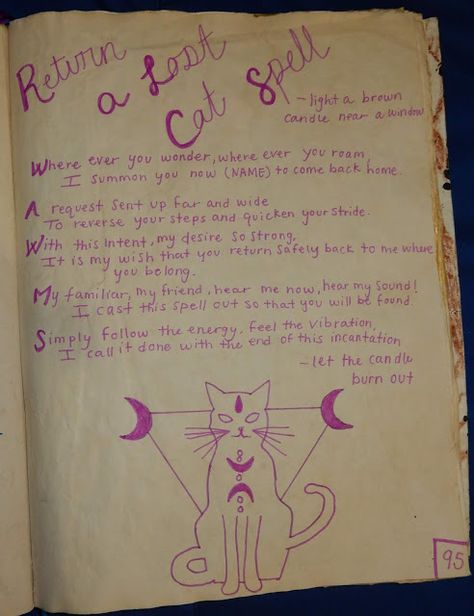 Return
a Lost
Cat Spell
- light a brown
candle near a window
Where ever you wonder, where ever you roam,
I summon you now (NAME) to come back home.
A request sent up far and wide
To reverse your steps and quicken your stride.
With this intent, my desire so strong,
It is my wish that you return safely back to me where
you belong.
My familiar, my friend, hear me now, hear my sound!
I cast this spell out so that you will be found.
Simply follow the energy, feel the vibration,
I call it done with the end of this incantation
- let the candle
burn out
95